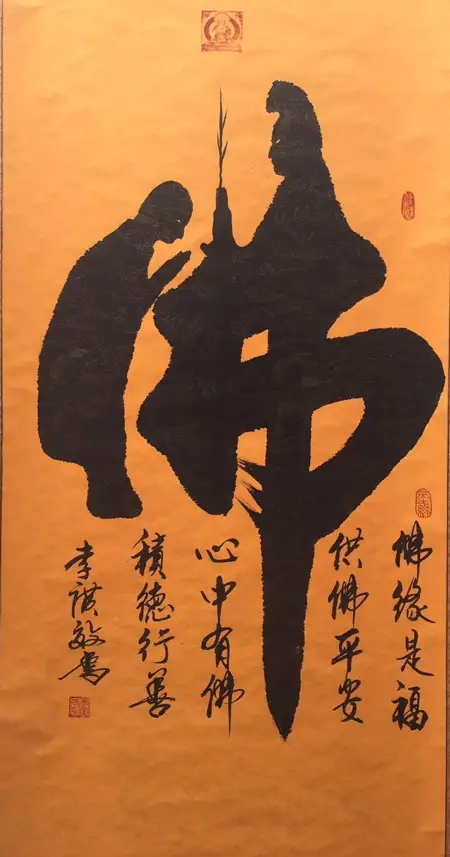 佛
佛缘是福
供佛平安
心中有佛
積德行善